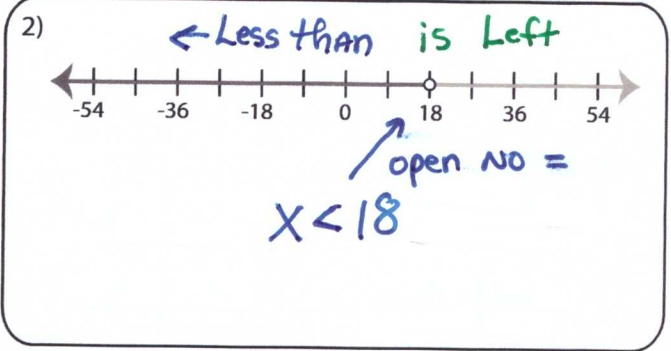 2)
← Less than is Left
-54 -36 -18 0 18 36 54
open NO =
X < 18